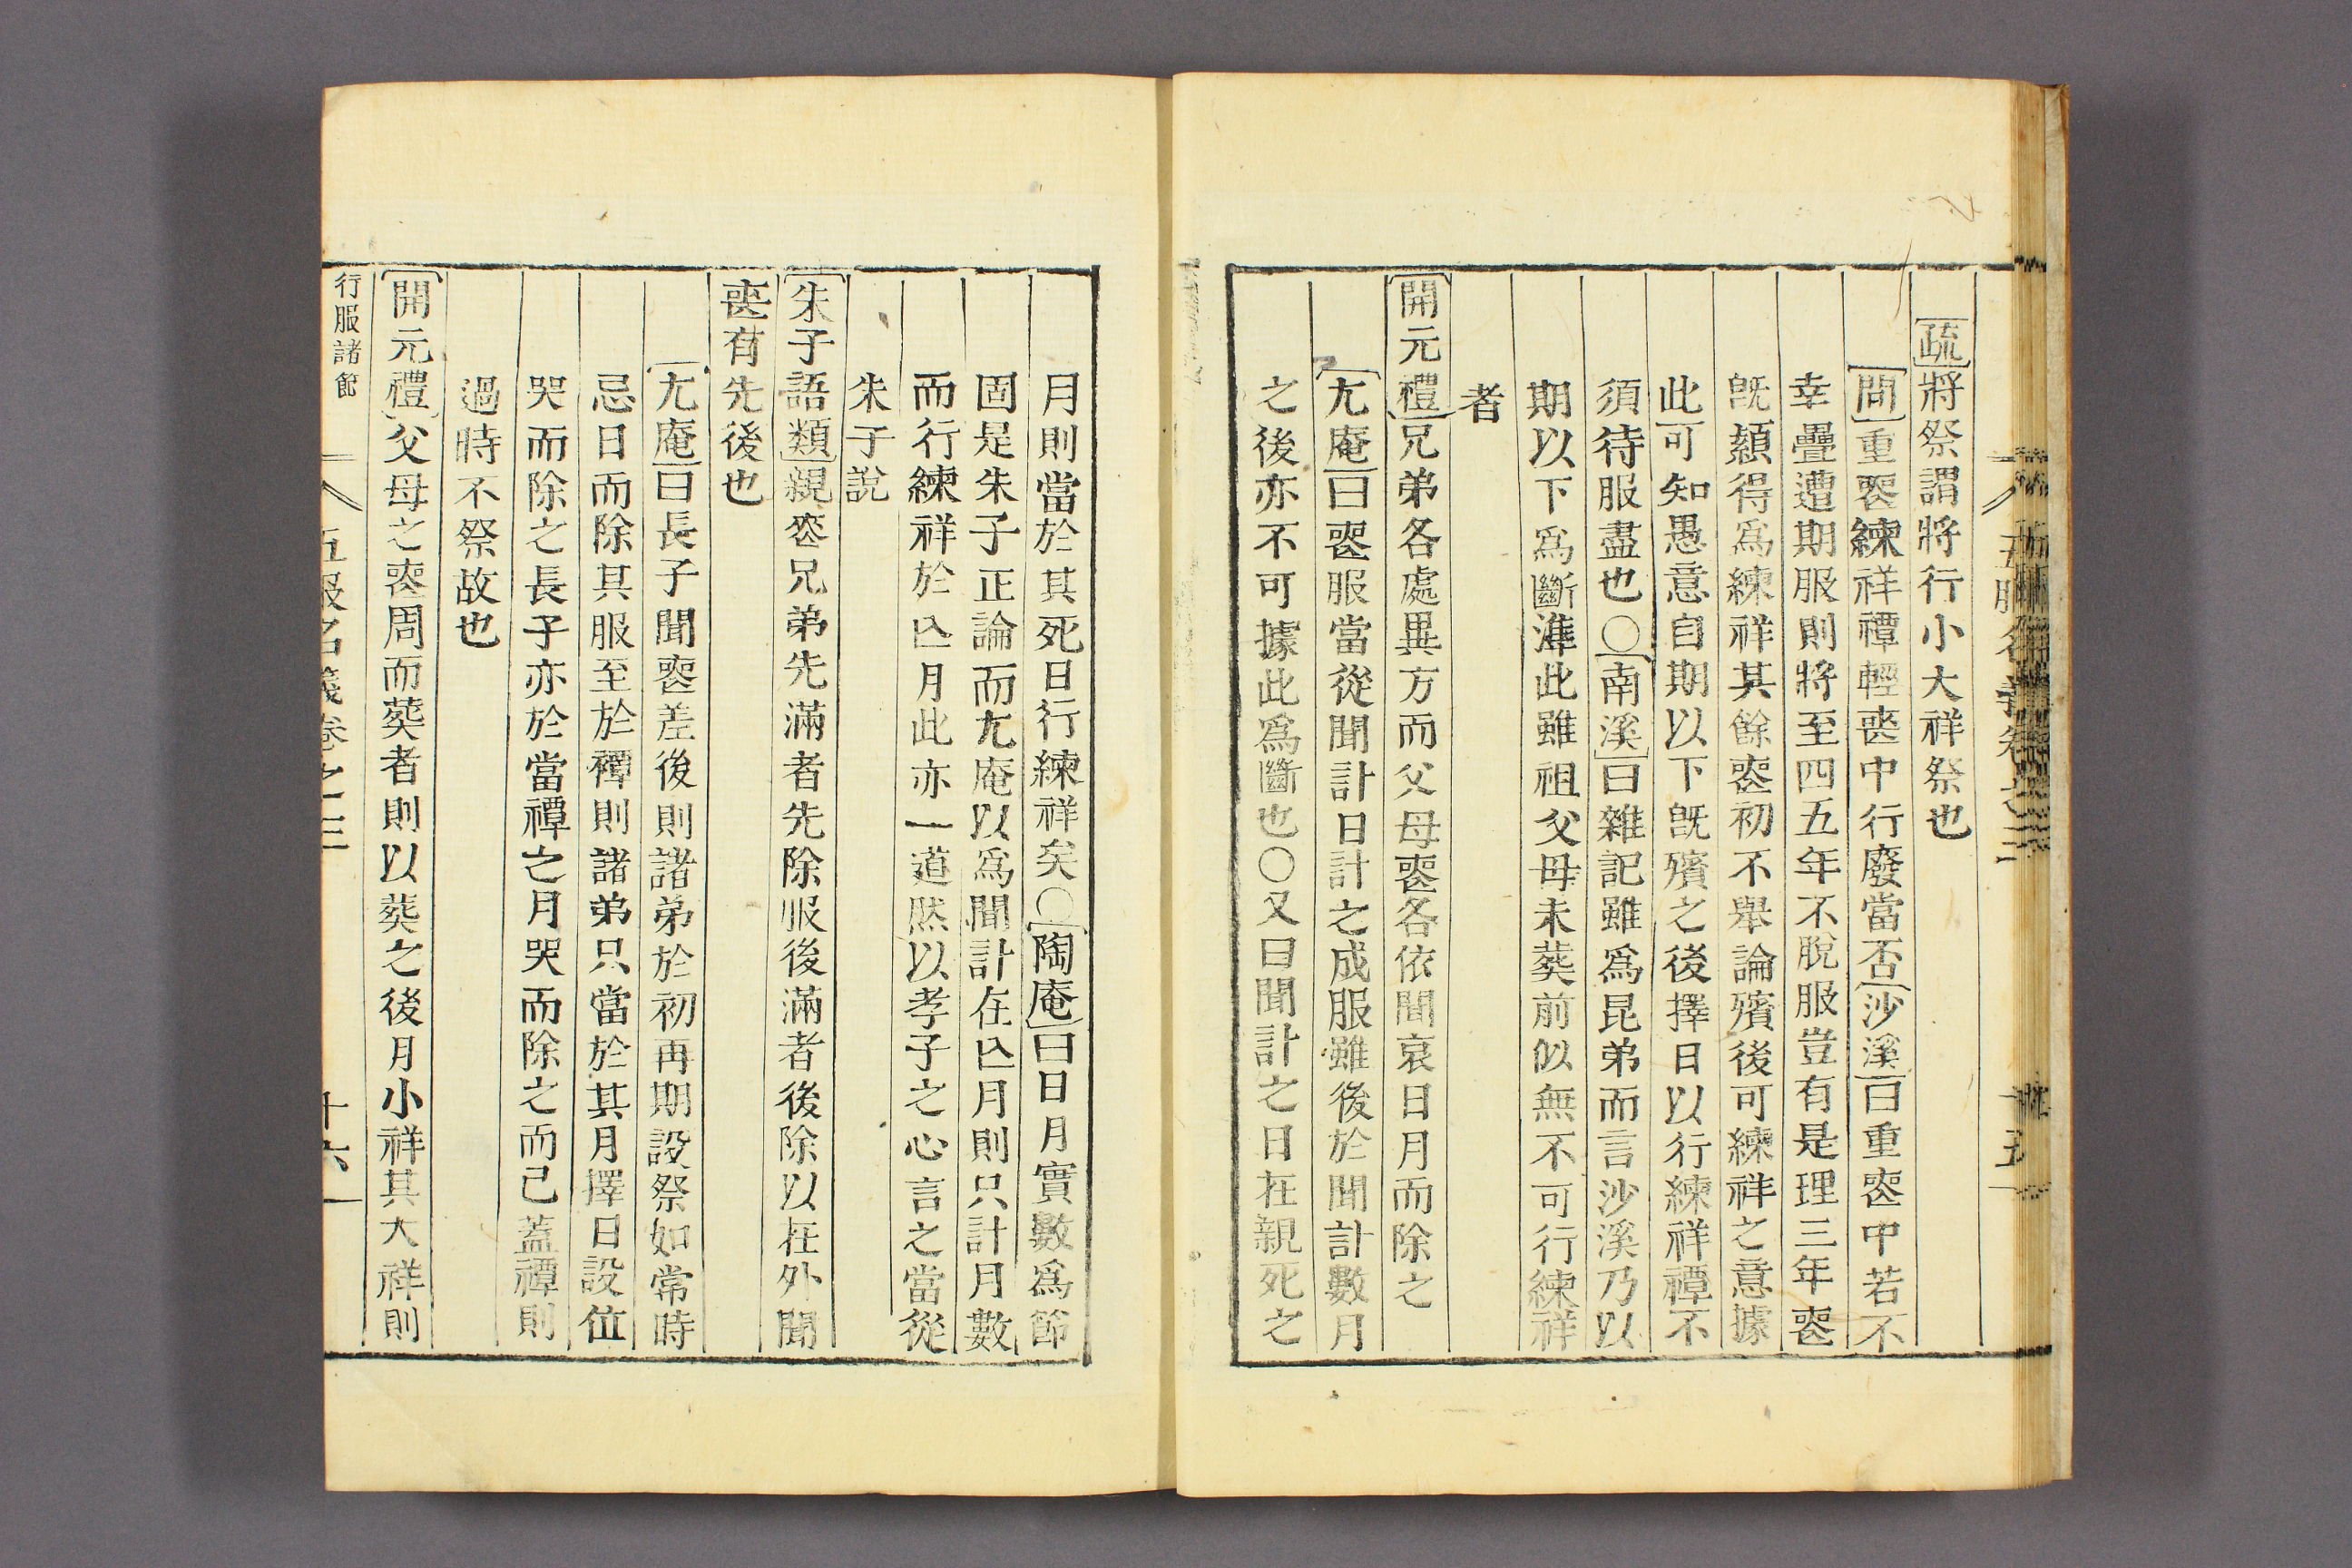 疏將祭謂將行小大祥祭也
問重喪練祥禫輕喪中行廢當否沙溪曰重喪中若不
幸疊遭期服則將至四五年不脫服豈有是理三年喪
旣顈得爲練祥其餘喪初不擧論殯後可練祥之意據
此可知愚意自期以下旣殯之後擇日以行練祥禫不
須待服盡也○南溪曰雜記雖爲昆弟而言沙溪乃以
期以下爲斷準此雖祖父母未葬前似無不可行練祥
者
開元禮兄弟各處異方而父母喪各依聞哀日月而除之
尤庵曰喪服當從聞訃日計之成服雖後於聞訃數月
之後亦不可據此爲斷也○又曰聞訃之日在親死之
月則當於其死日行練祥矣○陶庵曰日月實數爲節
固是朱子正論而尤庵以爲聞訃在亾月則只計月數
而行練祥於亾月此亦一道然以孝子之心言之當從
朱子說
朱子語類親喪兄弟先滿者先除服後滿者後除以在外聞
喪有先後也
尤庵曰長子聞喪差後則諸弟於初再期設祭如常時
忌日而除其服至於禫則諸弟只當於其月擇日設位
哭而除之長子亦於當禫之月哭而除之而已蓋禫則
過時不祭故也
開元禮父母之喪周而葬者則以葬之後月小祥其大祥則
行服諸節 五服名義卷之三 十六